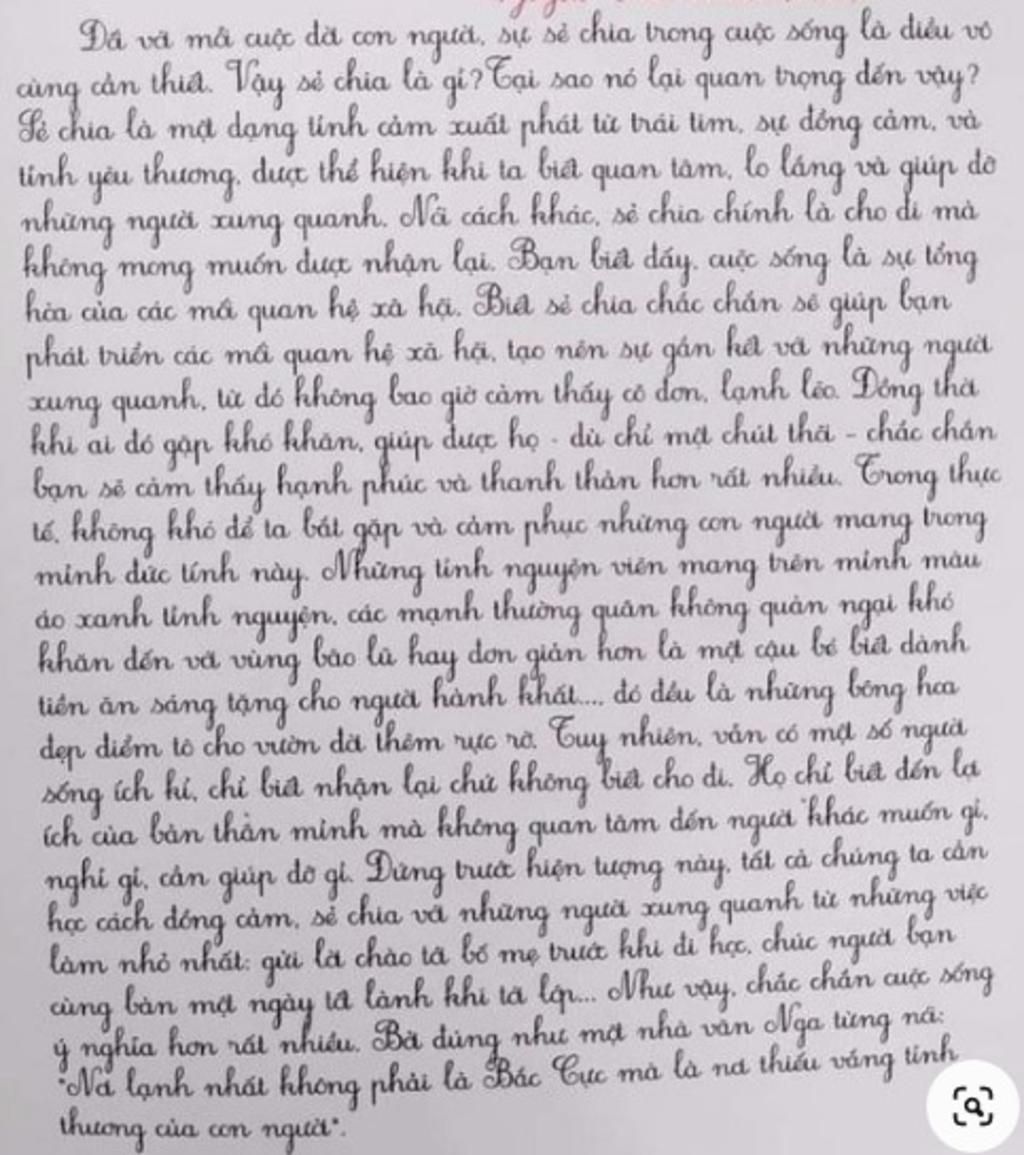 Đối với mỗi cuộc đời con người, sự sẻ chia trong cuộc sống là điều vô
cùng cần thiết. Vậy sẻ chia là gì? Tại sao nó lại quan trọng đến vậy?
Sẻ chia là một dạng tình cảm xuất phát từ trái tim, sự đồng cảm, và
tình yêu thương, được thể hiện khi ta biết quan tâm, lo lắng và giúp đỡ
những người xung quanh. Nói cách khác, sẻ chia chính là cho đi mà
không mong muốn được nhận lại. Bạn biết đấy, cuộc sống là sự tổng
hòa của các mối quan hệ xã hội. Biết sẻ chia chắc chắn sẽ giúp bạn
phát triển các mối quan hệ xã hội, tạo nên sự gắn kết với những người
xung quanh, từ đó không bao giờ cảm thấy cô đơn, lạnh lẽo. Đồng thời
khi ai đó gặp khó khăn, giúp được họ - dù chỉ một chút thôi - chắc chắn
bạn sẽ cảm thấy hạnh phúc và thanh thản hơn rất nhiều. Trong thực
tế, không khó để ta bắt gặp và cảm phục những con người mang trong
mình đức tính này. Những tình nguyện viên mang trên mình màu
áo xanh tình nguyện, các mạnh thường quân không quản ngại khó
khăn đến với vùng bão lũ hay đơn giản hơn là một cậu bé biết dành
tiền ăn sáng tặng cho người hành khất.... đó đều là những bông hoa
đẹp điểm tô cho vườn đời thêm rực rỡ. Tuy nhiên, vẫn có một số người
sống ích kỉ, chỉ biết nhận lại chứ không biết cho đi. Họ chỉ biết đến lợi
ích của bản thân mình mà không quan tâm đến người khác muốn gì,
nghĩ gì, cần giúp đỡ gì. Đứng trước hiện tượng này, tất cả chúng ta cần
học cách đồng cảm, sẻ chia với những người xung quanh từ những việc
làm nhỏ nhất: gửi lời chào tới bố mẹ trước khi đi học, chúc người bạn
cùng bàn một ngày tốt lành khi tới lớp... Như vậy, chắc chắn cuộc sống
ý nghĩa hơn rất nhiều. Bởi đúng như một nhà văn Nga từng nói:
"Nơi lạnh nhất không phải là Bắc Cực mà là nơi thiếu vắng tình
thương của con người".